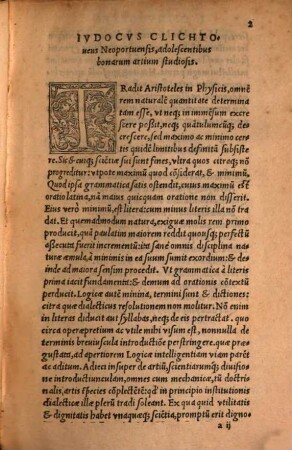 2
IVDOCVS CLICHTO-
ueus Neoportuensis, adolescentibus
bonarum artium studiosis.
TRadit Aristoteles in Physicis, omnē
rem naturalē quantitate determina
tam esse, vt neq; in immēsum excre
scere possit, neq; quātulumcūq; de-
crescere, sed maximo ac minimo cer-
tis quidē limitibus definita subsiste
re. Sic & cuiq; sciētiæ sui sunt fines, vltra quos citroq; nō
progreditur: vtpote maximū quod cōsiderat, & minimū.
Quod ipsa grammatica satis ostendit, cuius maximū est
oratio latina, nā maius quicquam oratione non disserit.
Eius verò minimū, est literarum minus literis illa nil tra
dat. Et quemadmodum natura, exiguā molis rem primo
producit, quā paulatim maiorem reddit quousq; perfectū
assecuta fuerit incrementū: ita sanè omnis disciplina na-
turæ æmula, à minimo in ea rerum sumit exordium: & de
inde ad maiora sensim procedit. Vt grammatica à literis
prima iacit fundamenta: & demum ad orationis cōtextū
perducit. Logicæ autē minima, termini sunt & dictiones:
citra quas dialecticus resolutionem non molitur. Nō enim
in literas diducit aut syllabas, neq; de eis pertractat. quo
circa operæpretium ac vtile mihi visum est, nonnulla de
terminis breuiuscula introductiōe perstringere. quæ præ-
gustata, ad apertiorem Logicæ intelligentiam viam parēt
ac aditum. Adieci insuper de artiū, scientiarumq; diuisio
ne introductiunculam, omnes cum mechanicæ, tū doctri-
nalis, artis species cōplectētē: qd' in principio institutionis
dialecticæ illæ plerū tradi soleant. Ex qua quid vtilitatis
& dignitatis habet vnaquæq; sciētia, promptū erit digno-
a ij